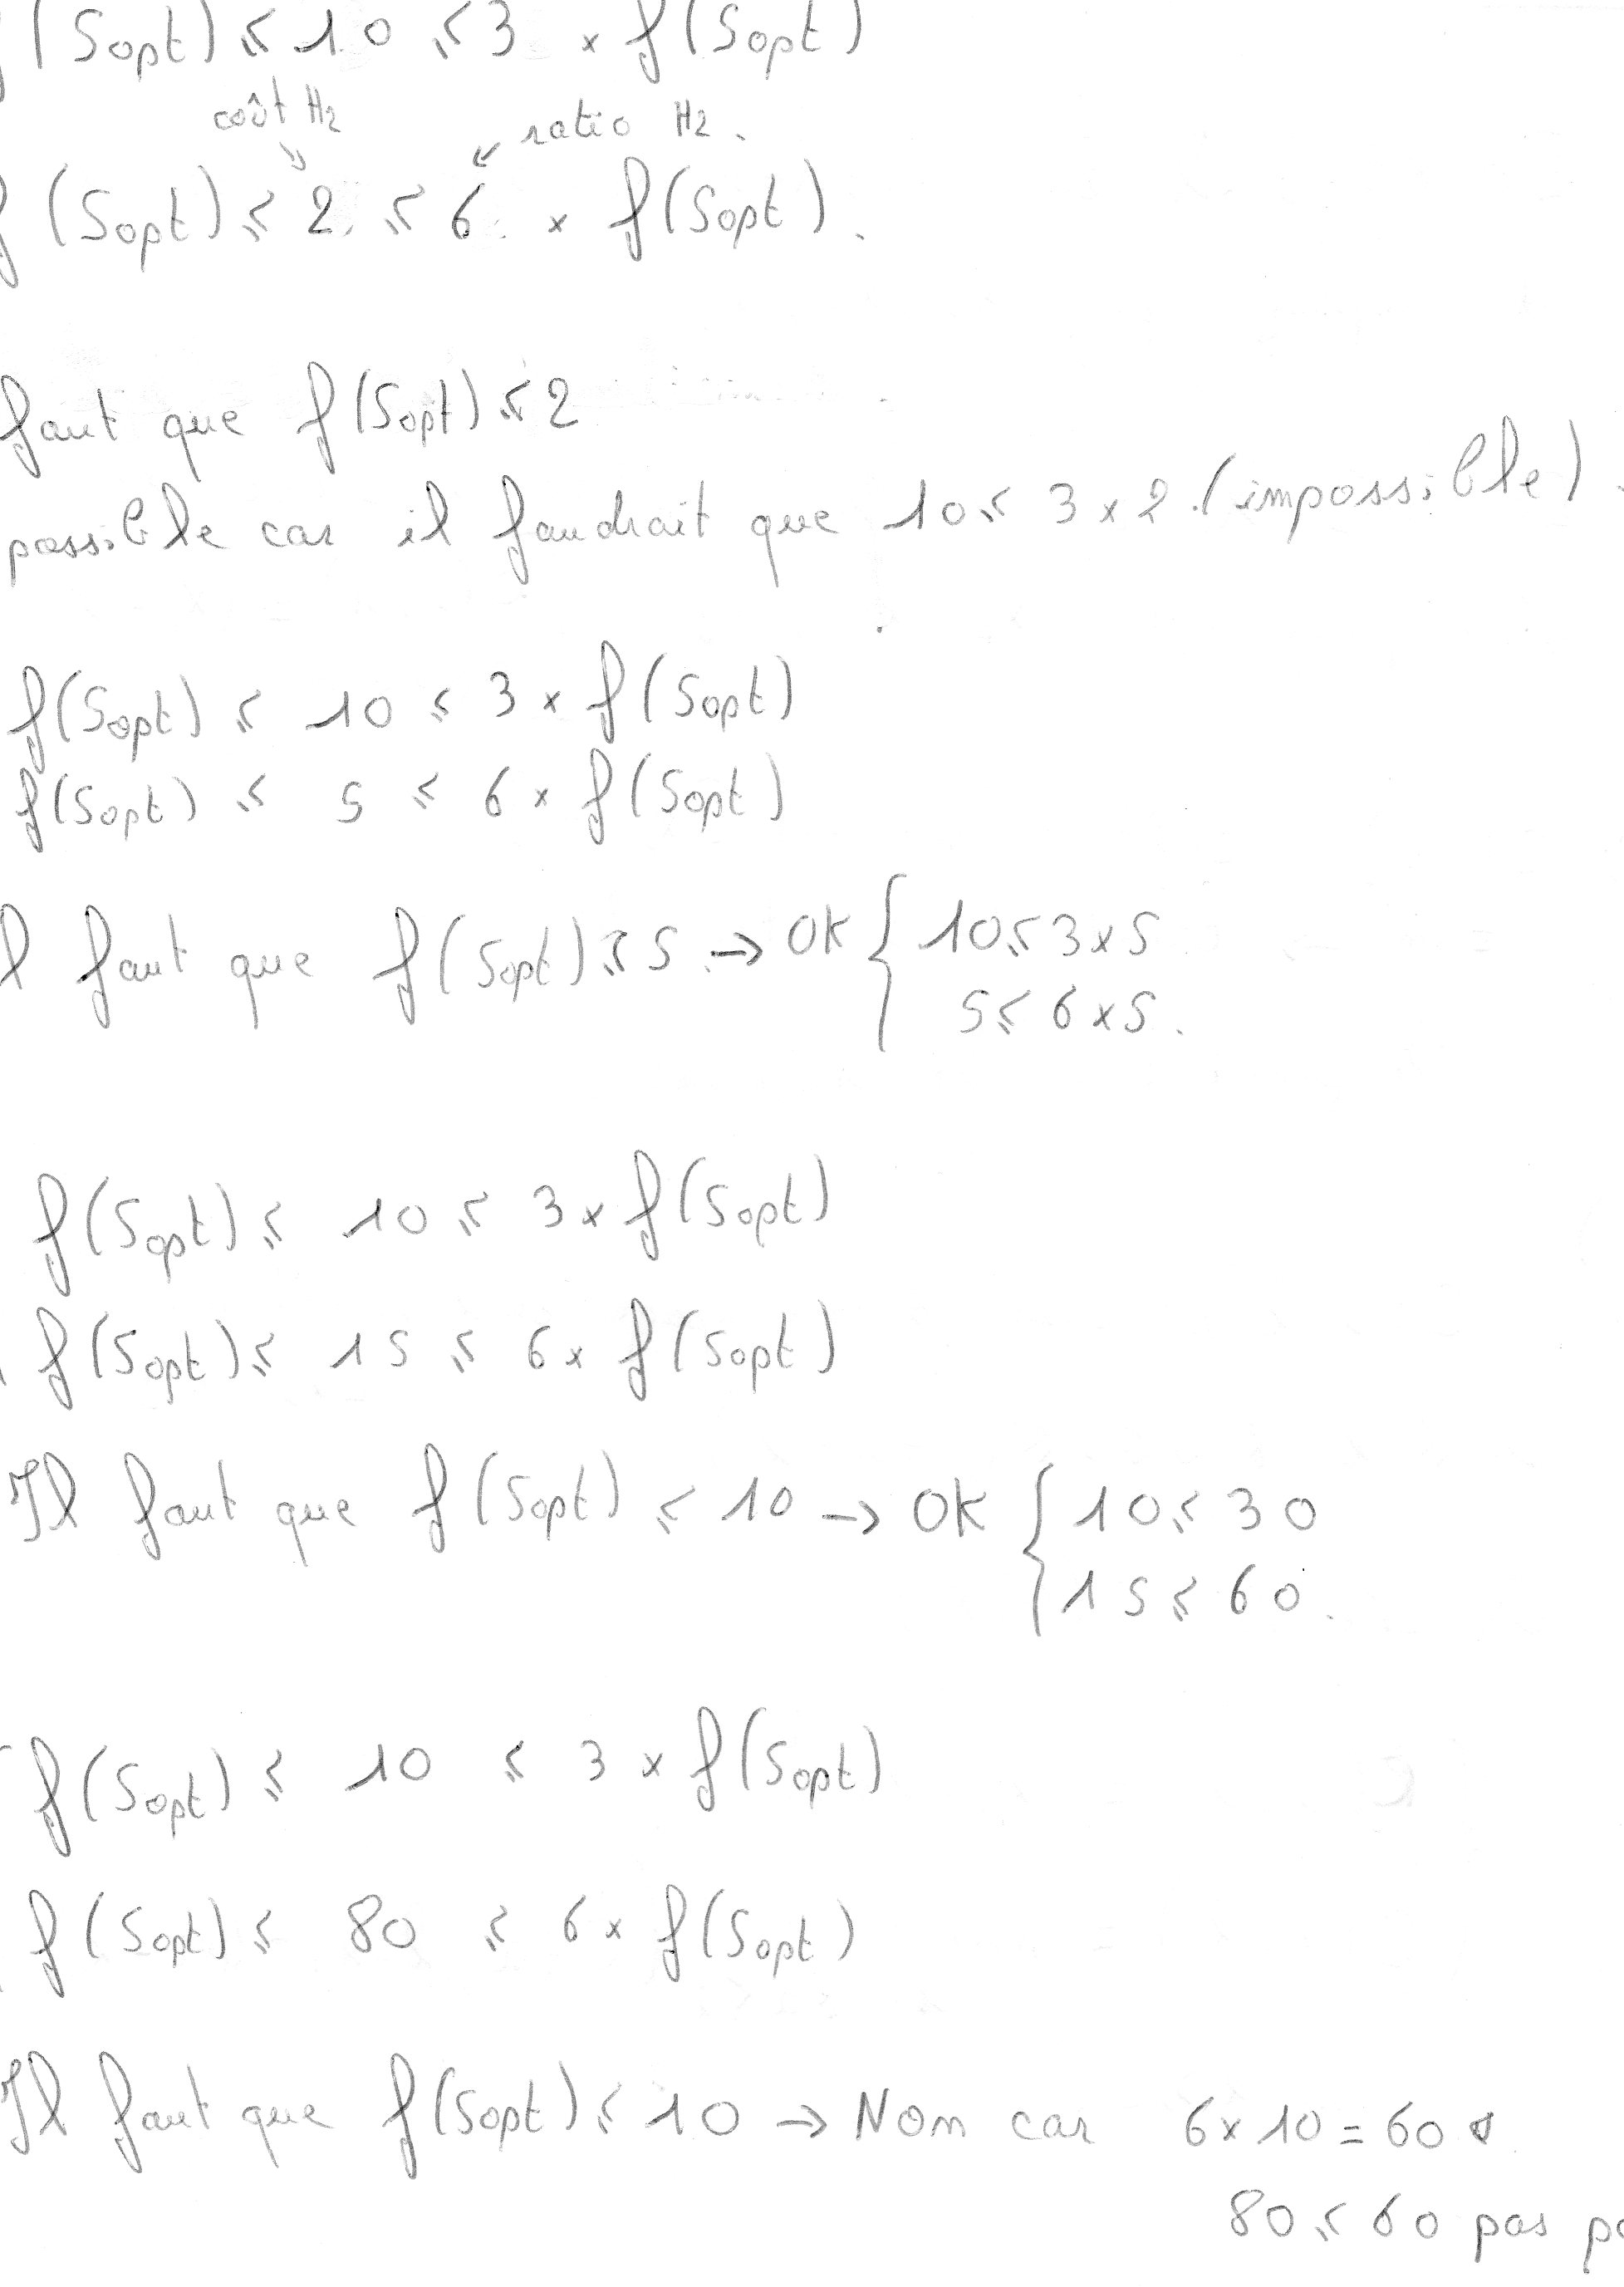 (Sopt) ≤ 10 ≤ 3 × f(Sopt)
coût H2
ratio H2.
f(Sopt) ≤ 2 ≤ 6 × f(Sopt).
faut que f(Sopt) ≤ 2
possible car il faudrait que 10 ≤ 3 × 2 (impossible).
f(Sopt) ≤ 10 ≤ 3 × f(Sopt)
f(Sopt) ≤ 5 ≤ 6 × f(Sopt)
l faut que f(Sopt) ≤ 5 → OK { 10 ≤ 3 × 5
5 ≤ 6 × 5.
f(Sopt) ≤ 10 ≤ 3 × f(Sopt)
f(Sopt) ≤ 15 ≤ 6 × f(Sopt)
Il faut que f(Sopt) ≤ 10 → OK { 10 ≤ 30
15 ≤ 60.
f(Sopt) ≤ 10 ≤ 3 × f(Sopt)
f(Sopt) ≤ 80 ≤ 6 × f(Sopt)
Il faut que f(Sopt) ≤ 10 → Non car 6 × 10 = 60
80 ≤ 60 pas